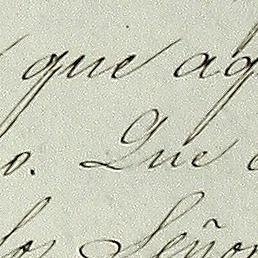 que aq
o. Que
los Señor